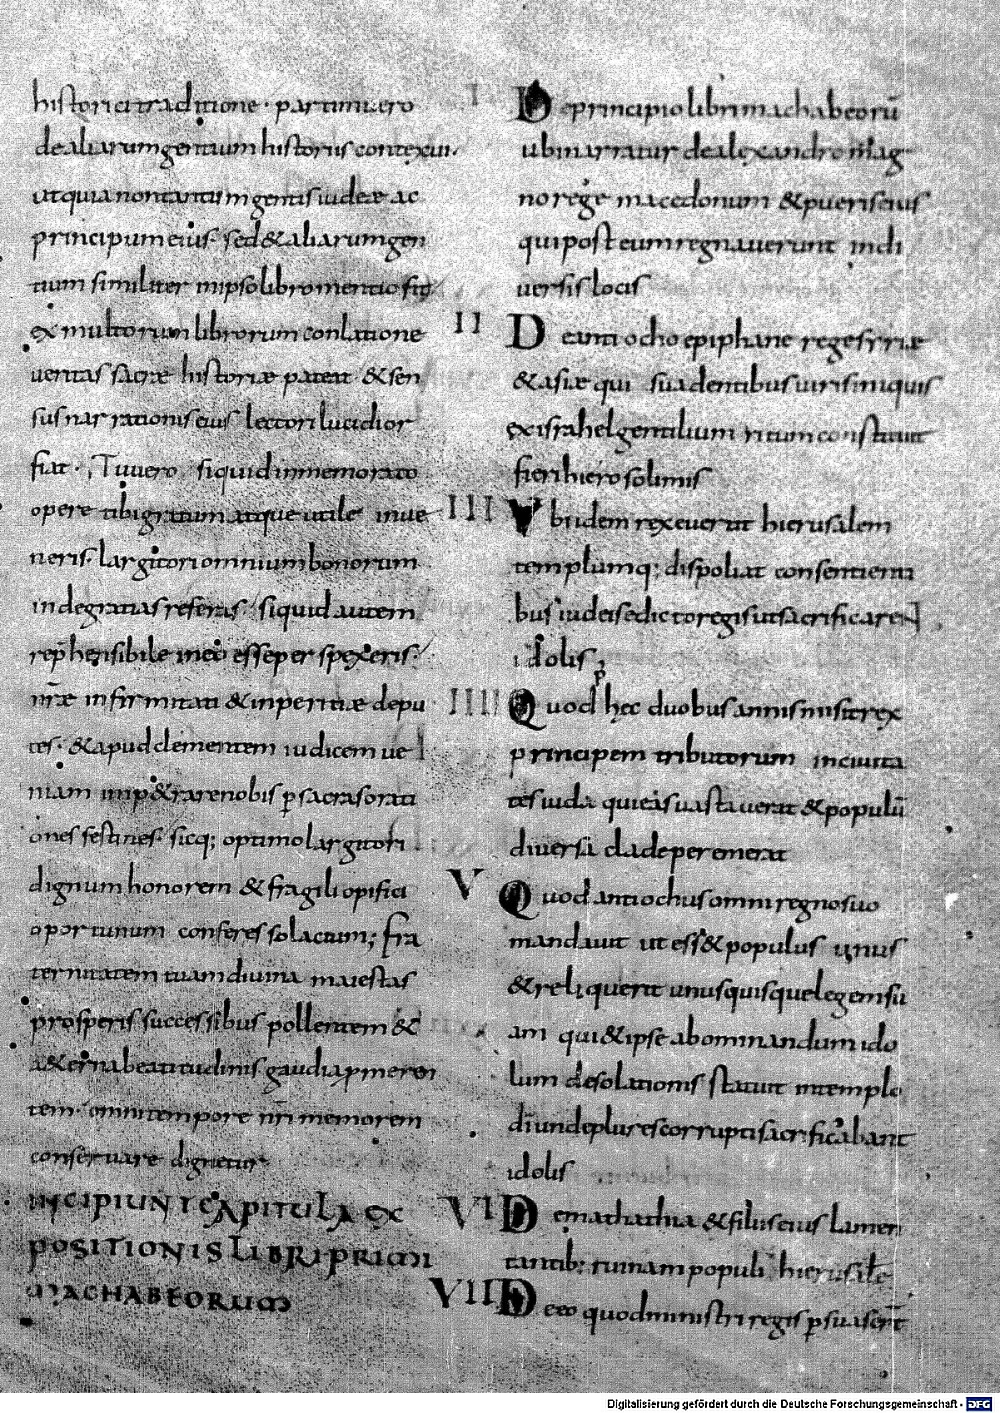 historici traditione· partim uero
de aliarum gentium historiis contexui·
ut quia non tantum gentis iudeæ ac
principum eius· sed & aliarum gen
tium similiter in ipso libro mentio fit
ex multorum librorum conlatione
ueritas sacræ historiæ pateat & sen
sus narrationis eius lectori lucidior
fiat· Tu uero siquid in memorato
opere tibi gratum atque utile inue
neris· largitori omnium bonorum
inde gratias referas· siquid autem
rep̄hensibile in eo esse perspexeris·
nr̄æ infirmitati & inperitiæ depu
tes· & apud clementem iudicem ue
niam imp&rare nobis ꝑ sacras orati
ones festines· sicq; optimo largitori
dignum honorem & fragili opifici
oportunum conferes solacium; fra
ternitatem tuam diuina maiestas
prosperis successibus pollentem &
a&erna beatitudinis gaudia ꝓmeren
tem· omni tempore nr̄i memorem
conseruare dignetur
INCIPIUNT CAPITULA EX
POSITIONIS LIBRI PRIMI
MACHABEORUM
I De principio libri machabeorū
ubi narratur de alexandro mag
no rege macedonum & pueris eius
qui post eum regnauerunt in di
uersis locis
II De antiocho epiphane rege syriæ
& asiæ qui suadentibus uiris iniquis
ex israhel gentilium ritum constituit
fieri hierosolimis
III Ubi idem rex euertit hierusalem
templumq; dispoliat consentienti
bus iudeis edicto regis ut sacrificarent
idolis
IIII Quod hęc duobus annis misit rex
principem tributorum in ciuita
tes iuda qui eas uastauerat & populū
diuersa clade peremerat
V Quod antiochus omni regno suo
mandauit ut ess& populus unus
& relinquerit unusquisque legem su
am qui & ipse abominandum ido
lum desolationis statuit in templo
dī unde plures corrupti sacrificabant
idolis
VI De mathathia & filiis eius lamen
tantib; ruinam populi hierusalē
VII De eo quod ministri regis ꝑsuaserī
Digitalisierung gefördert durch die Deutsche Forschungsgemeinschaft - DFG